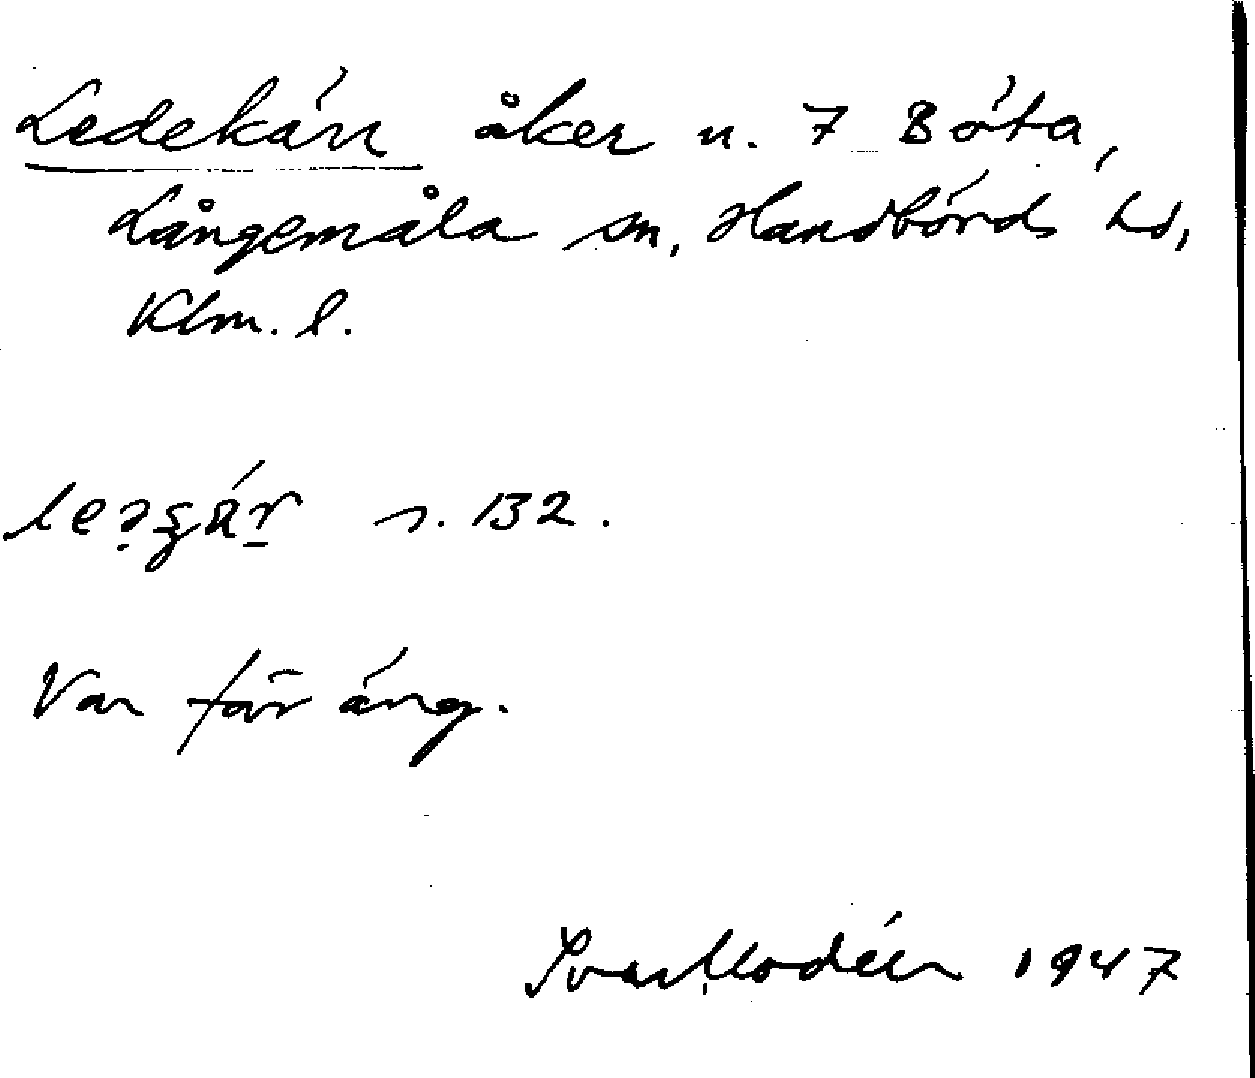 Ledekärr åker n. 7 Böta,
Långemåla sn, Handbörds hd,
Klm. l.
s. 132.
Var förr äng.
Ivar Modéer 1947